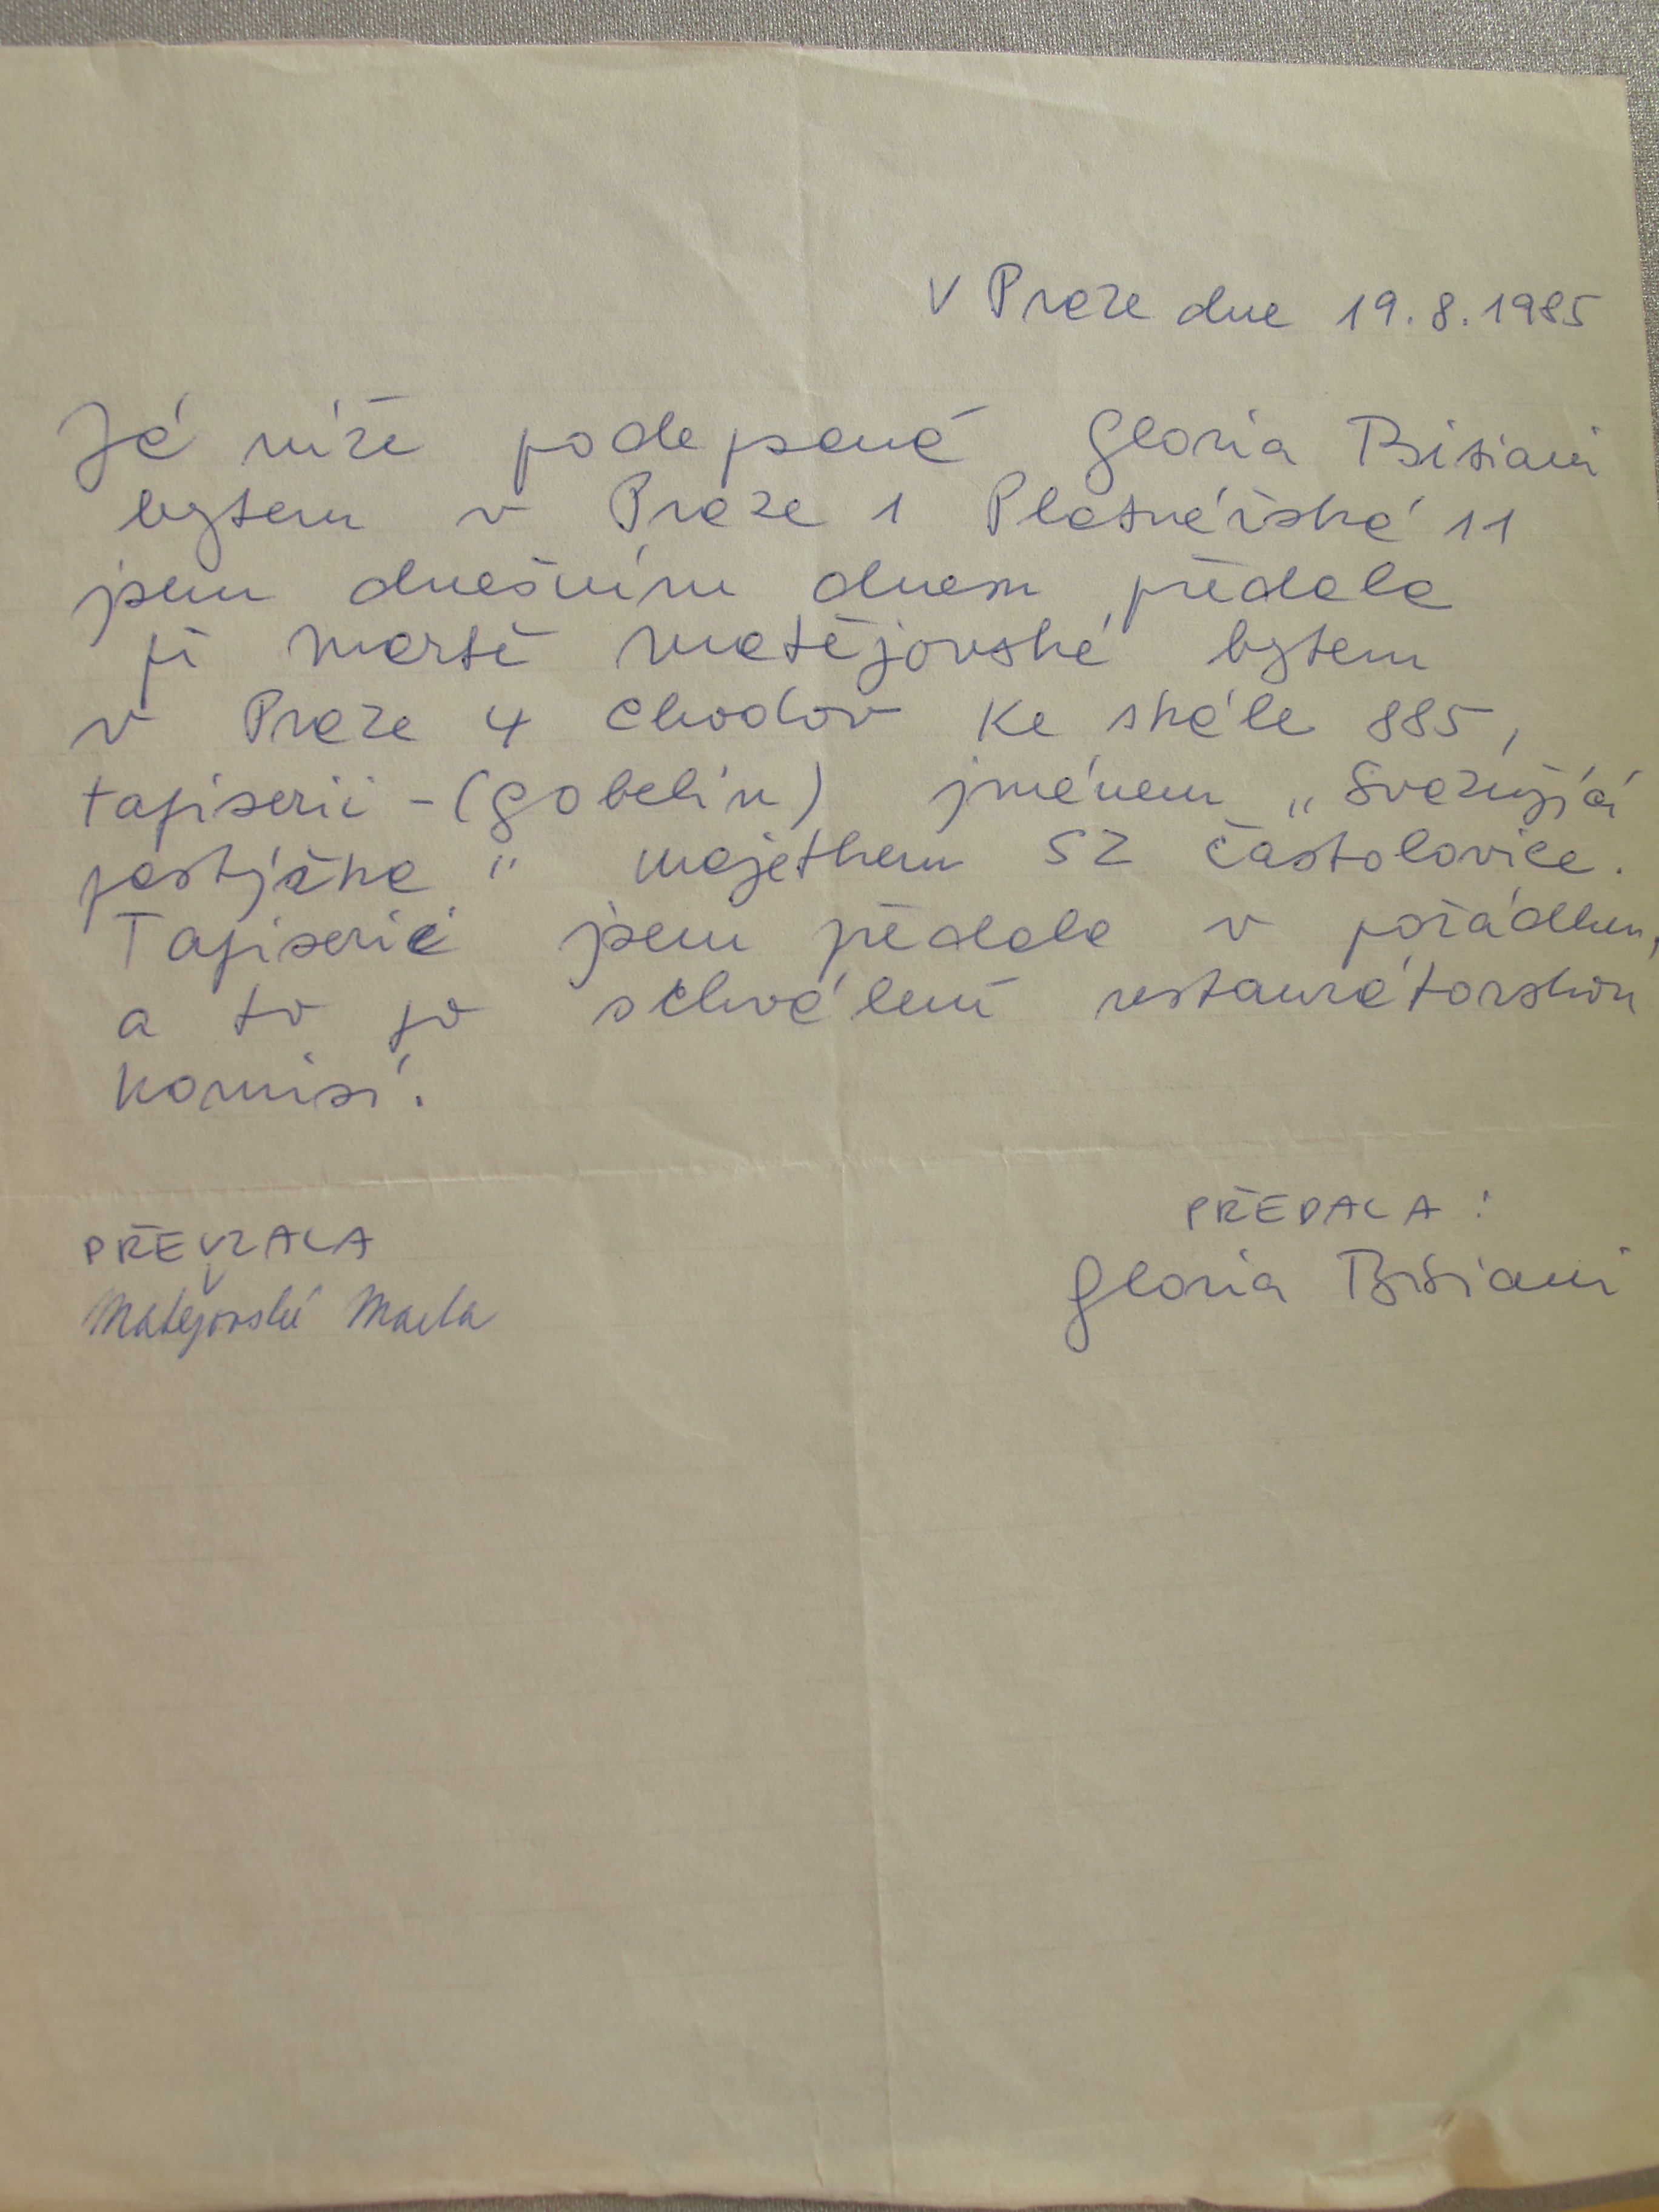 V Praze dne 19.8.1985
Já níže podepsaná Gloria Bisiani
bytem v Praze 1 Platnéřská 11
jsem dnešním dnem předala
pí Martě Matějovské bytem
v Praze 4 Chodov Ke skále 885,
tapiserii - (gobelín) jménem „Svazující
pastýřka" majetkem SZ Častolovice.
Tapiserii jsem předala v pořádku,
a to po schválení restaurátorskou
komisí.
PŘEDALA:
PŘEVZALA
Gloria Bisiani
Matějovská Marta